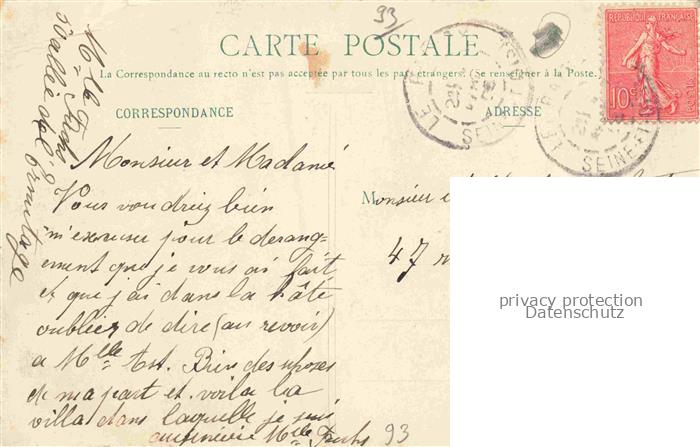 93
CARTE POSTALE
La Correspondance au recto n'est pas acceptée par tous les pays étrangers. (Se renseigner à la Poste.)
RÉPUBLIQUE FRANÇAISE
10c
LE RA
SEINE-ET-O
LE RA
SEINE-ET-O
CORRESPONDANCE
ADRESSE
Monsieur et Madame
Vous voudriez bien
m'excuser pour le derang-
ement que je vous ai fait
et que j'ai dans la hâte
oublier de dire (au revoir)
a Mlle Ast. Bien des choses
de ma part et voila la
villa dans laquelle je suis
Mlle
93
Mlle
vallée de l'ermitage
Monsieur
47
privacy protection
Datenschutz